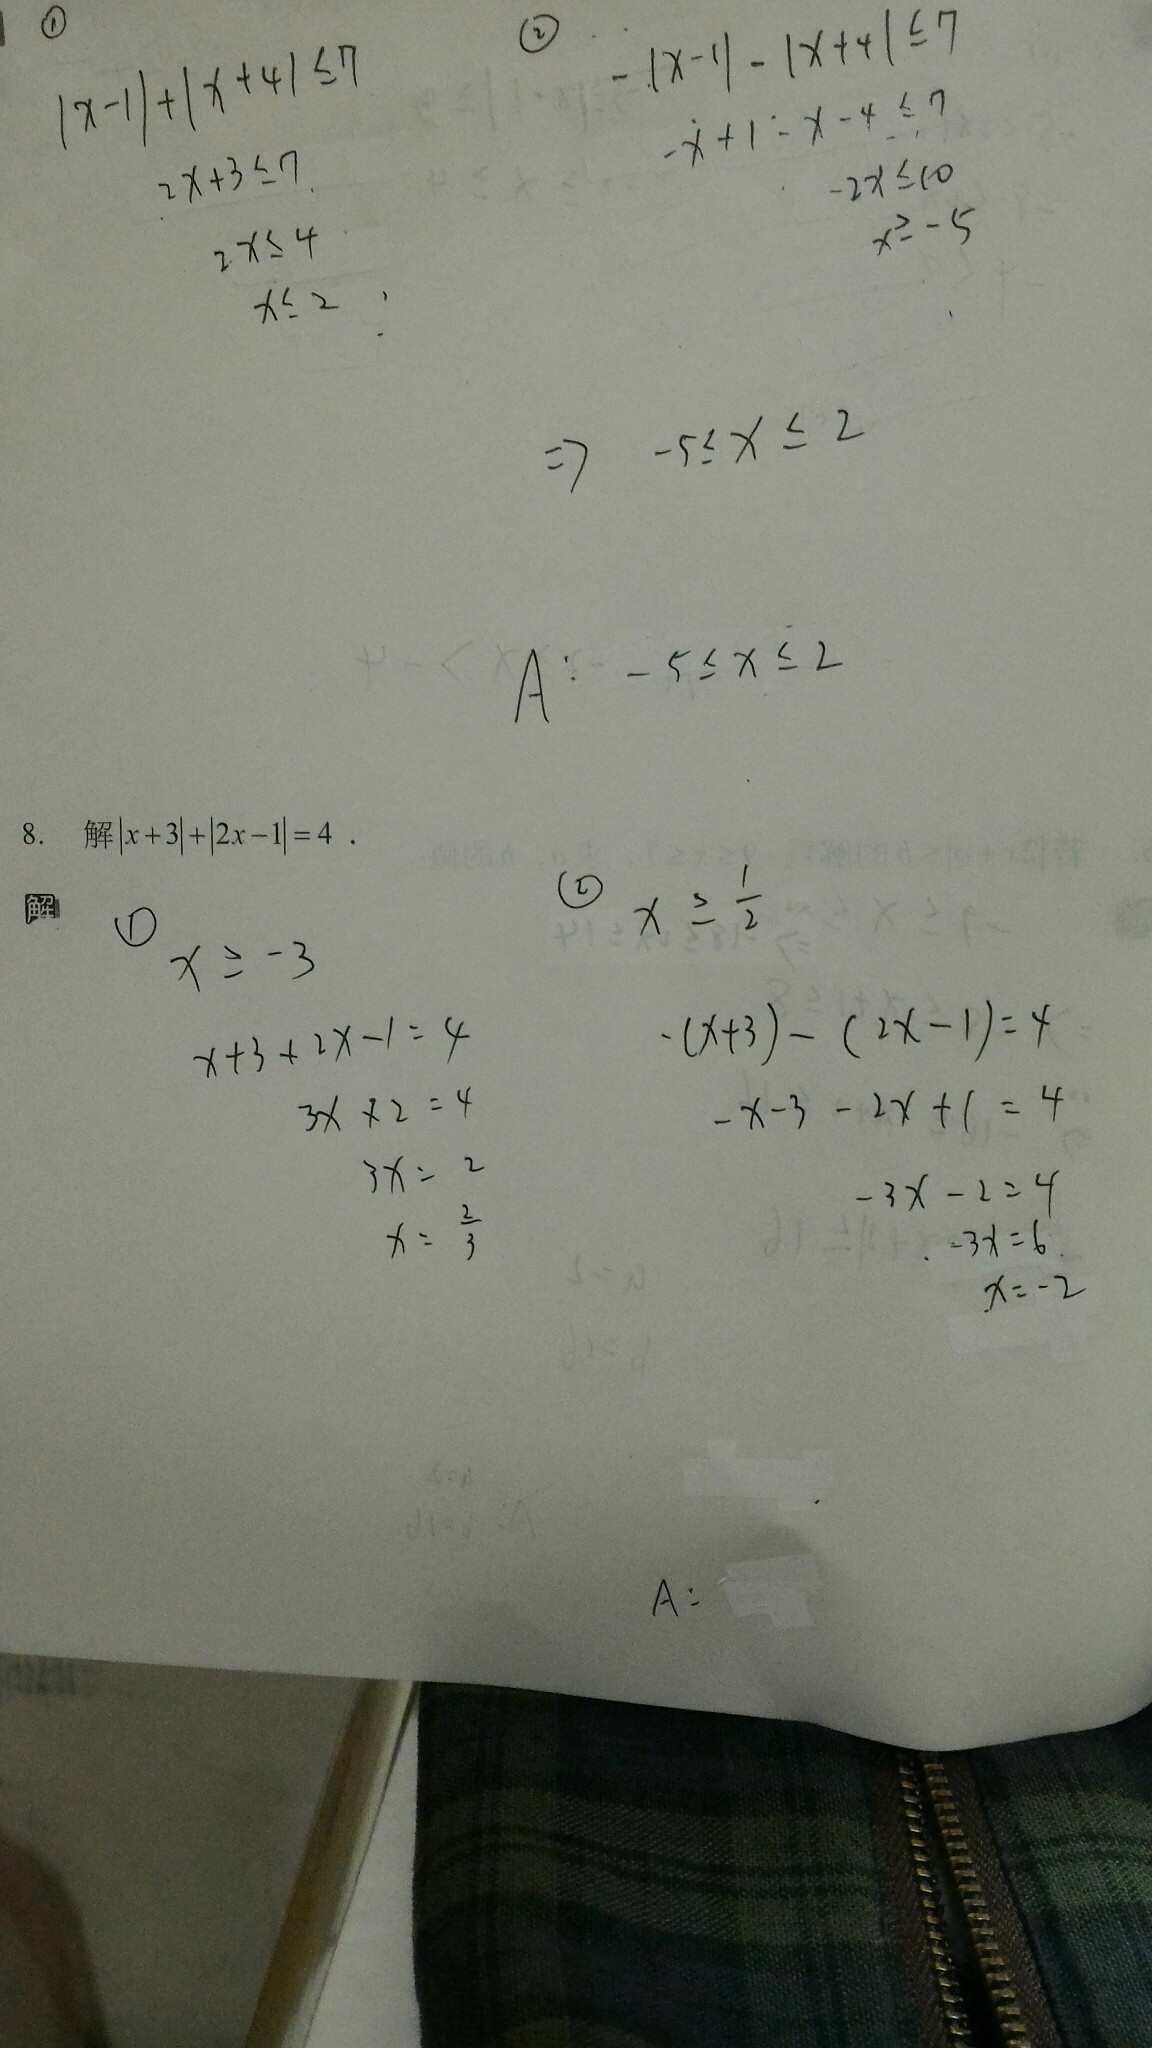 ①
|x-1|+|x+4|≤7
2x+3≤7
2x≤4
x≤2
②
-|x-1|-|x+4|≤7
-x+1-x-4≤7
-2x≤10
x≥-5
⇒ -5≤x≤2
A: -5≤x≤2
8. 解|x+3|+|2x-1|=4.
解
①
x≥-3
x+3+2x-1=4
3x+2=4
3x=2
x=2/3
②
x≥1/2
-(x+3)-(2x-1)=4
-x-3-2x+1=4
-3x-2=4
-3x=6
x=-2
A: